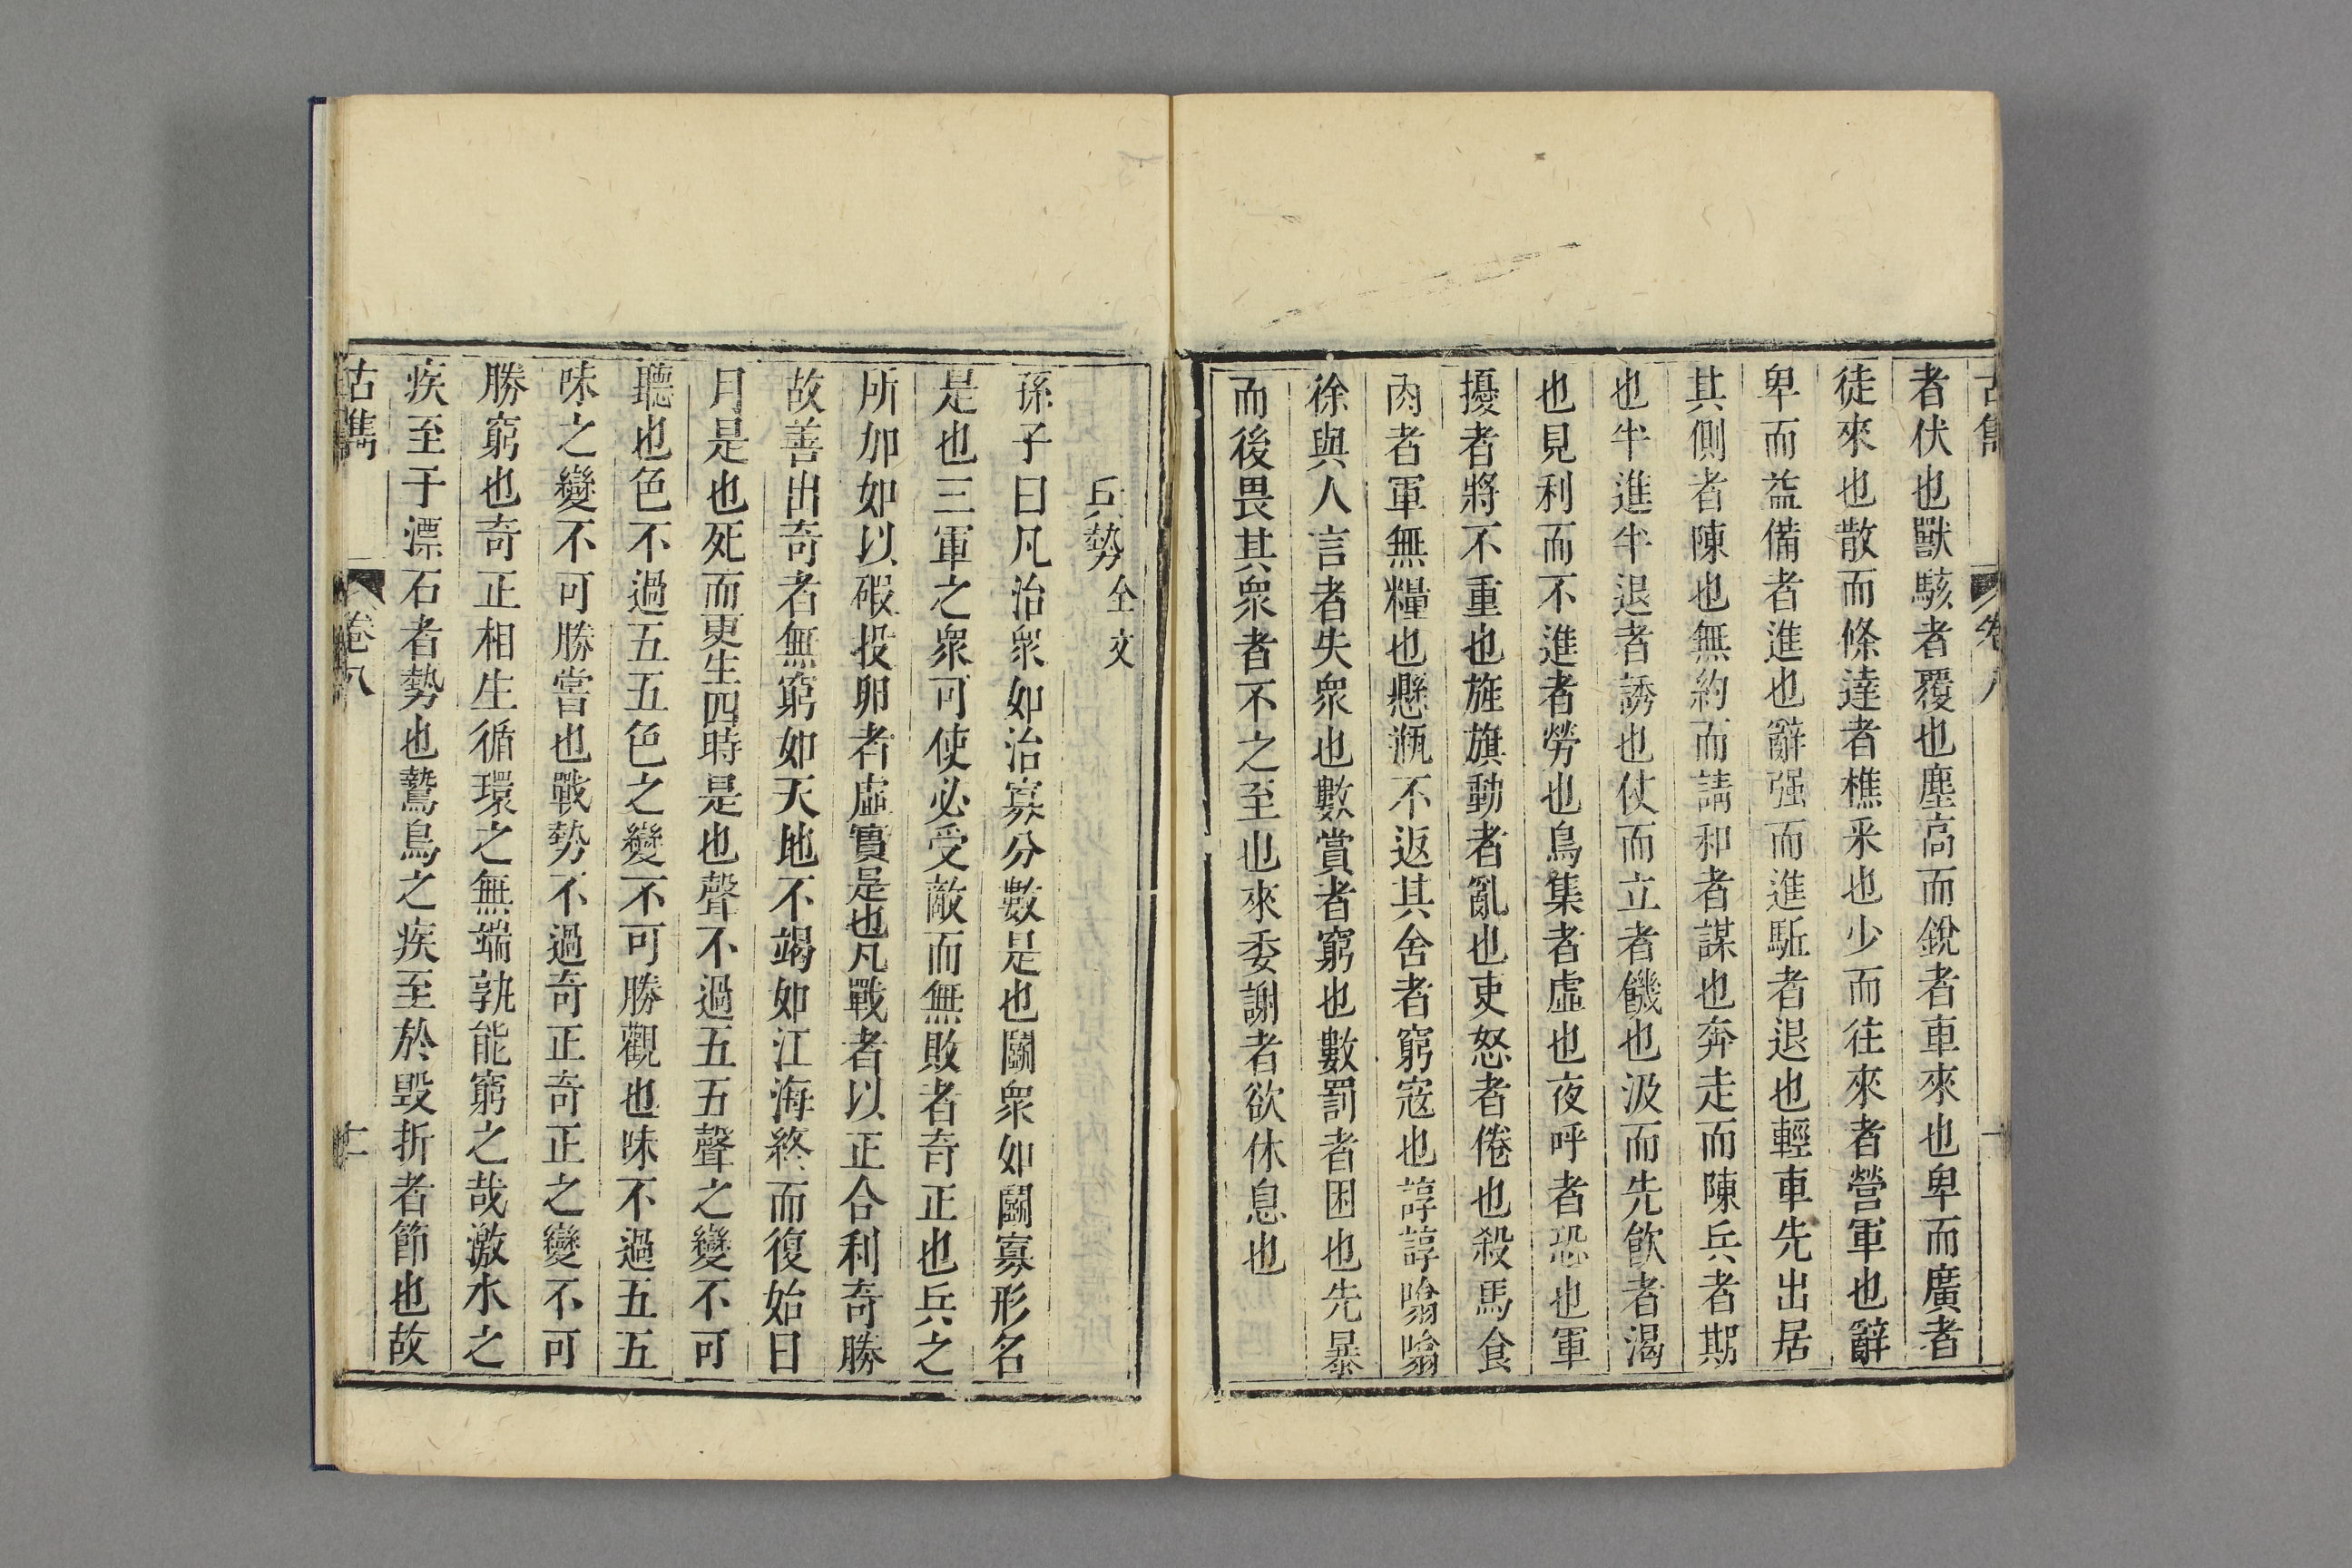 者伏也獸駭者覆也塵高而銳者車來也卑而廣者
徒來也散而條達者樵釆也少而往來者營軍也辭
卑而益備者進也辭强而進駈者退也輕車先出居
其側者陳也無約而請和者謀也奔走而陳兵者期
也半進半退者誘也仗而立者饑也汲而先飲者渴
也見利而不進者勞也鳥集者虛也夜呼者恐也軍
擾者將不重也旌旗動者亂也吏怒者倦也殺馬食
肉者軍無糧也懸缻不返其舍者窮寇也諄諄噏噏
徐與人言者失衆也數賞者窮也數罰者困也先暴
而後畏其衆者不之至也來委謝者欲休息也
兵勢全文
孫子曰凡治衆如治寡分數是也鬭衆如鬭寡形名
是也三軍之衆可使必受敵而無敗者奇正也兵之
所加如以碬投卵者虛實是也凡戰者以正合利奇勝
故善出奇者無窮如天地不竭如江海終而復始日
月是也死而更生四時是也聲不過五五聲之變不可
聽也色不過五五色之變不可勝觀也味不過五五
味之變不可勝嘗也戰勢不過奇正奇正之變不可
勝窮也奇正相生循環之無端孰能窮之哉激水之
疾至于漂石者勢也鷙鳥之疾至於毀折者節也故
古雋
卷八
十二